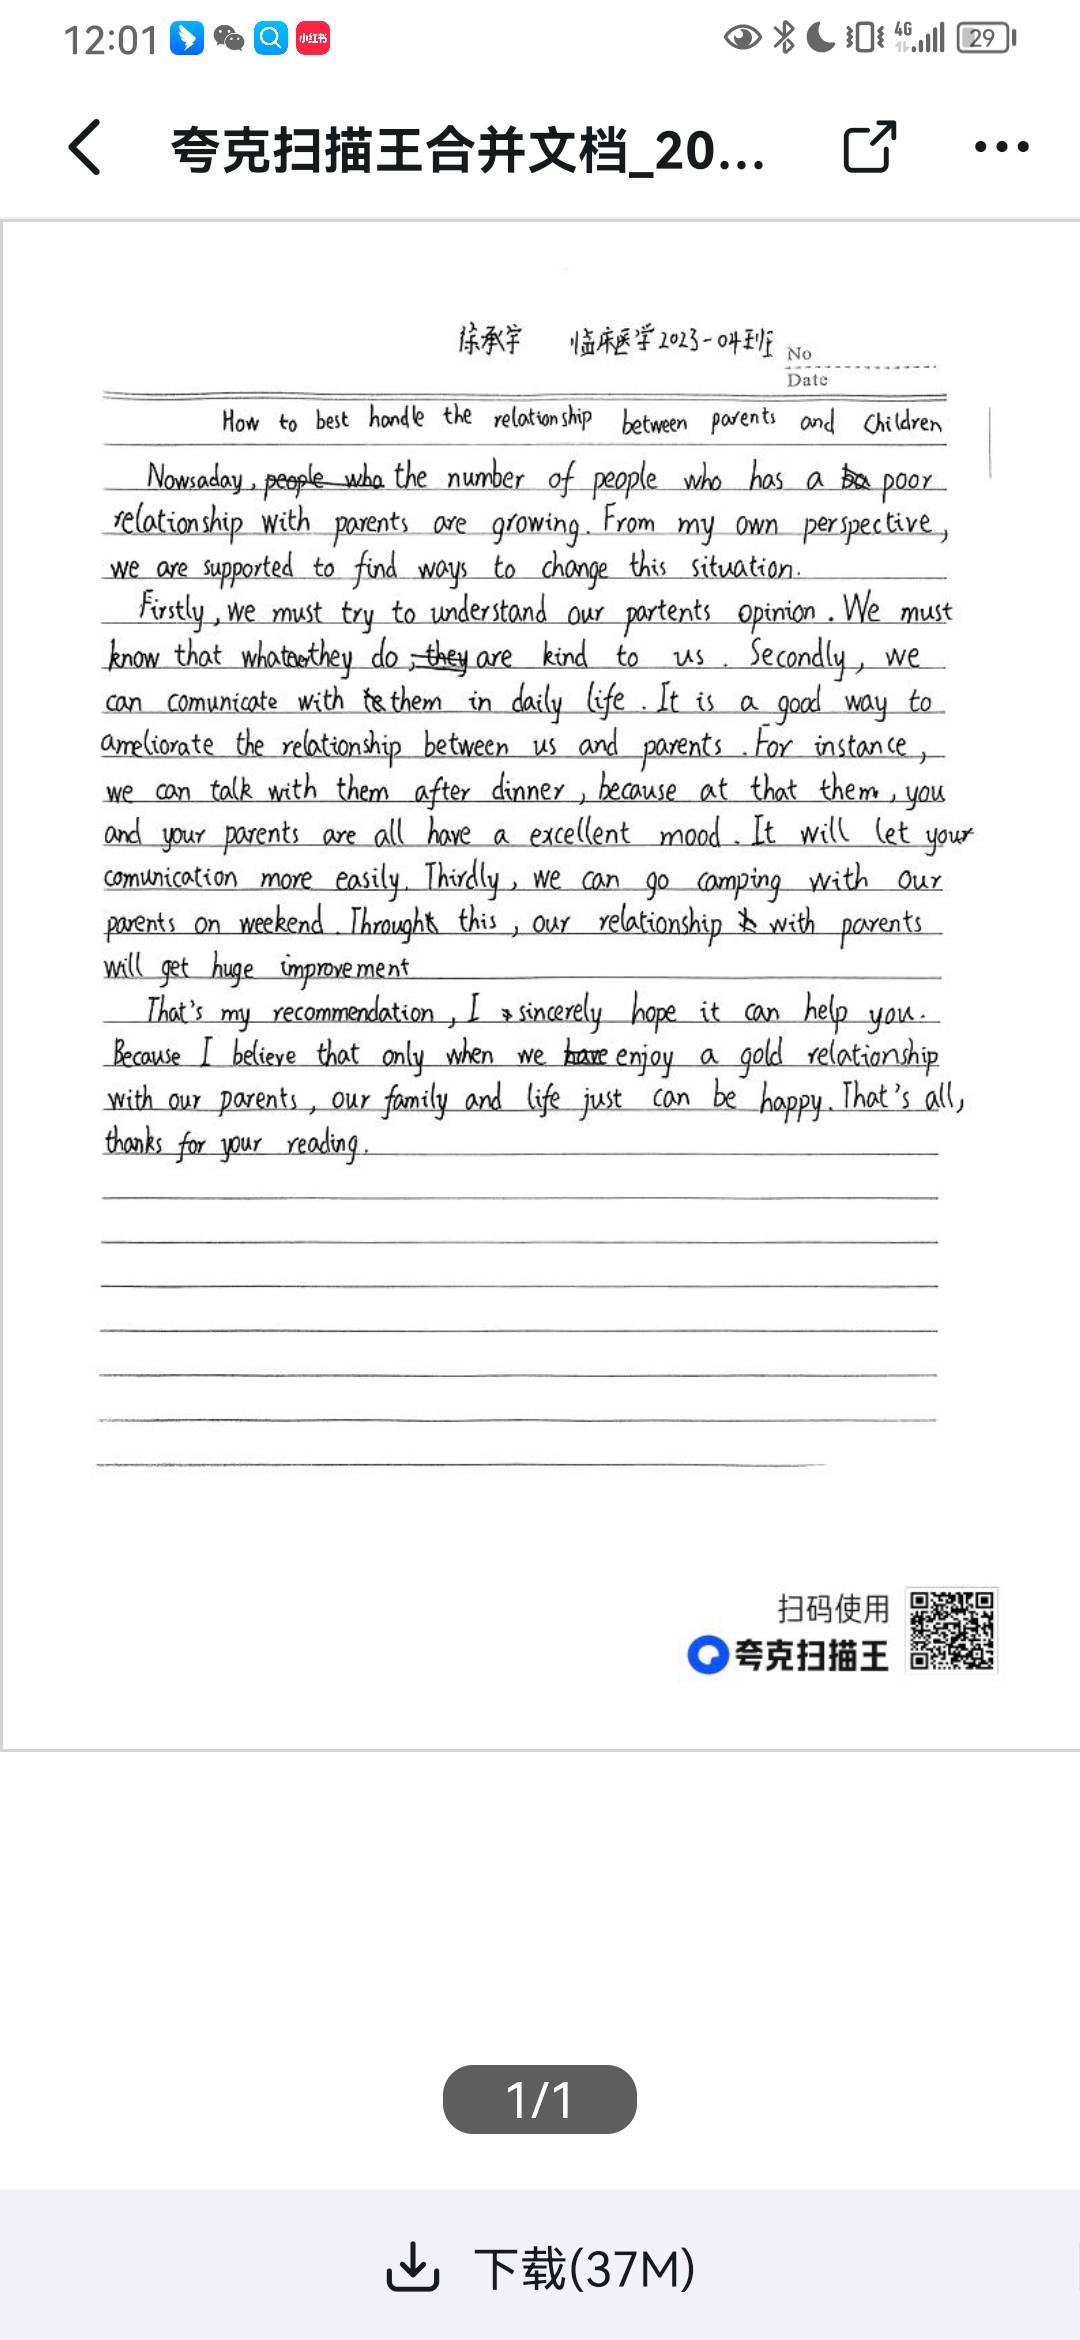 12:01
小红书
4G
29
夸克扫描王合并文档_20...
徐承宇 临床医学2023-04班
No
Date
How to best handle the relationship between parents and Children
Nowsaday, people who the number of people who has a poor
relationship with parents are growing. From my own perspective,
we are supported to find ways to change this situation.
Firstly, we must try to understand our partents opinion. We must
know that they do, they are kind to us. Secondly, we
can comunicate with them in daily life. It is a good way to
ameliorate the relationship between us and parents. For instance,
we can talk with them after dinner, because at that them, you
and your parents are all have a excellent mood. It will let your
comunication more easily. Thirdly, we can go camping with our
parents on weekend. Throught this, our relationship with parents
will get huge improvement
That's my recommendation, I sincerely hope it can help you.
Because I believe that only when we have enjoy a gold relationship
with our parents, our family and life just can be happy. That's all,
thanks for your reading.
扫码使用
夸克扫描王
1/1
下载(37M)